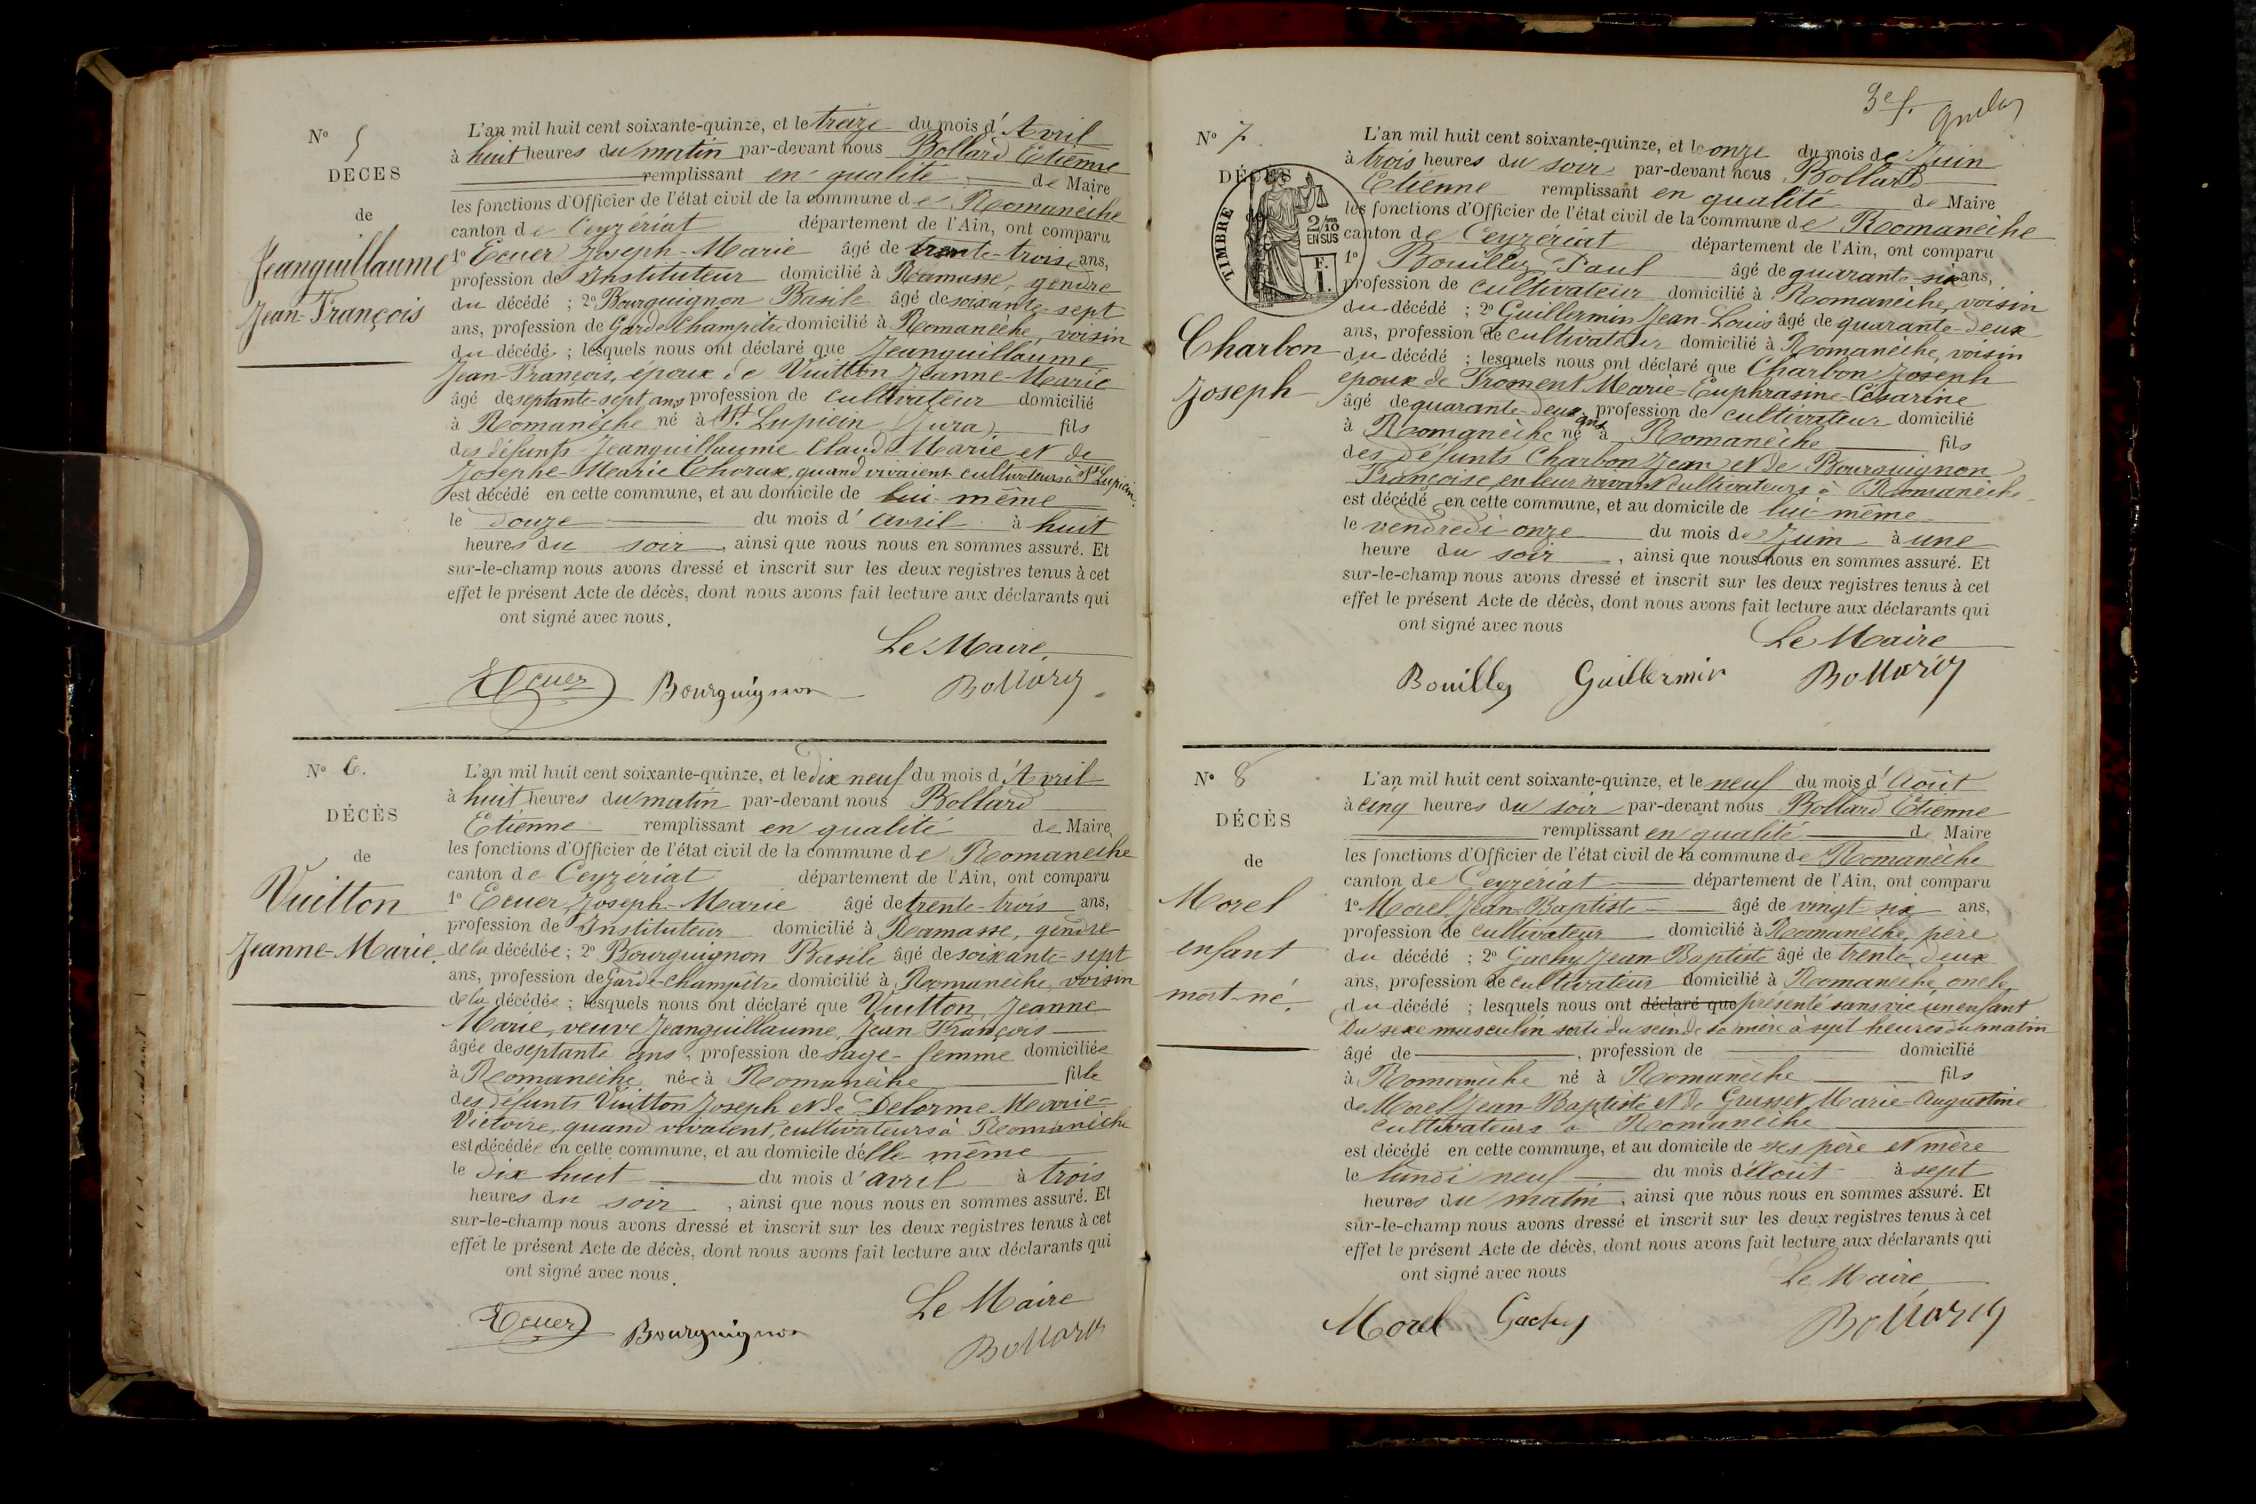 N° 5
DÉCÈS
de
Jeanguillaume
Jean-François
L'an mil huit cent soixante-quinze, et le treize du mois d'Avril
à huit heures du matin par-devant nous Bollard Etienne
remplissant en qualité de Maire
les fonctions d'Officier de l'état civil de la commune de Romanèche
canton de Ceyzériat département de l'Ain, ont comparu
1° Ecuer Joseph-Marie âgé de trente-trois ans,
profession de Instituteur domicilié à Ramasse, gendre
du décédé ; 2° Bourguignon Basile âgé de soixante-sept
ans, profession de Garde Champêtre domicilié à Romanèche, voisin
du décédé ; lesquels nous ont déclaré que Jeanguillaume
Jean-François, époux de Vuitton Jeanne-Marie
âgé de septante-sept ans profession de cultivateur domicilié
à Romanèche né à St Lupicin (Jura) fils
des défunts Jeanguillaume Claude Marie et de
Josephe-Marie Chorax, quand vivaient cultivateurs à St Lupicin.
est décédé en cette commune, et au domicile de lui-même
le douze du mois d'avril à huit
heures du soir, ainsi que nous nous en sommes assuré. Et
sur-le-champ nous avons dressé et inscrit sur les deux registres tenus à cet
effet le présent Acte de décès, dont nous avons fait lecture aux déclarants qui
ont signé avec nous.
Le Maire,
Ecuer Bourguignon Bollard
N° 6.
DÉCÈS
de
Vuitton
Jeanne-Marie.
L'an mil huit cent soixante-quinze, et le dix neuf du mois d'Avril
à huit heures du matin par-devant nous Bollard
Etienne remplissant en qualité de Maire
les fonctions d'Officier de l'état civil de la commune de Romaneche
canton de Ceyzeriat département de l'Ain, ont comparu
1° Ecuer Joseph-Marie âgé de trente-trois ans,
profession de Instituteur domicilié à Ramasse, gendre
de la décédée ; 2° Bourguignon Basile âgé de soixante-sept
ans, profession de Garde-champêtre domicilié à Romanèche, voisin
de la décédée ; lesquels nous ont déclaré que Vuitton, Jeanne
Marie, veuve Jeanguillaume, Jean François
âgée de septante ans, profession de sage-femme domiciliée
à Romanèche née à Romanèche fille
des défunts Vuitton Joseph et de Delorme Marie-
Victoire, quand vivaient, cultivateurs à Romanèche
est décédée en cette commune, et au domicile d'elle-même
le dix huit du mois d'avril à trois
heures du soir, ainsi que nous nous en sommes assuré. Et
sur-le-champ nous avons dressé et inscrit sur les deux registres tenus à cet
effet le présent Acte de décès, dont nous avons fait lecture aux déclarants qui
ont signé avec nous.
Le Maire
Ecuer Bourguignon Bollard
3e f.
N° 7.
DÉCÈS
TIMBRE
2/10
EN SUS
F.
1.
Charbon
Joseph
L'an mil huit cent soixante-quinze, et le onze du mois de Juin
à trois heures du soir par-devant nous Bollard
Etienne remplissant en qualité de Maire
les fonctions d'Officier de l'état civil de la commune de Romanèche
canton de Ceyzériat département de l'Ain, ont comparu
1° Bouilloz Paul âgé de quarante-six ans,
profession de cultivateur domicilié à Romanèche, voisin
du décédé ; 2° Guillermin Jean-Louis âgé de quarante-deux
ans, profession de cultivateur domicilié à Romanèche, voisin
du décédé ; lesquels nous ont déclaré que Charbon Joseph
époux de Froment Marie-Euphrasine-Césarine
âgé de quarante-deux ans profession de cultivateur domicilié
à Romanèche né à Romanèche fils
des défunts Charbon Jean et de Bourguignon
Françoise, en leur vivant cultivateurs à Romanèche
est décédé en cette commune, et au domicile de lui-même
le vendredi onze du mois de Juin à une
heure du soir, ainsi que nous nous en sommes assuré. Et
sur-le-champ nous avons dressé et inscrit sur les deux registres tenus à cet
effet le présent Acte de décès, dont nous avons fait lecture aux déclarants qui
ont signé avec nous
Le Maire
Bouilloz Guillermin Bollard
N° 8
DÉCÈS
de
Morel
enfant
mort-né.
L'an mil huit cent soixante-quinze, et le neuf du mois d'Août
à cinq heures du soir par-devant nous Bollard Etienne
remplissant en qualité de Maire
les fonctions d'Officier de l'état civil de la commune de Romanèche
canton de Ceyzériat département de l'Ain, ont comparu
1° Morel Jean-Baptiste âgé de vingt six ans,
profession de cultivateur domicilié à Romanèche, père
du décédé ; 2° Gachy Jean-Baptiste âgé de trente-deux
ans, profession de cultivateur domicilié à Romanèche, oncle
du décédé ; lesquels nous ont déclaré que présenté sans vie un enfant
du sexe masculin sorti du sein de sa mère à sept heures du matin
âgé de , profession de domicilié
à Romanèche né à Romanèche fils
de Morel Jean-Baptiste et de Grusset Marie-Augustine
cultivateurs à Romanèche
est décédé en cette commune, et au domicile de ses père et mère
le lundi neuf du mois d'Août à sept
heures du matin, ainsi que nous nous en sommes assuré. Et
sur-le-champ nous avons dressé et inscrit sur les deux registres tenus à cet
effet le présent Acte de décès, dont nous avons fait lecture aux déclarants qui
ont signé avec nous
Le Maire
Morel Gachy Bollard